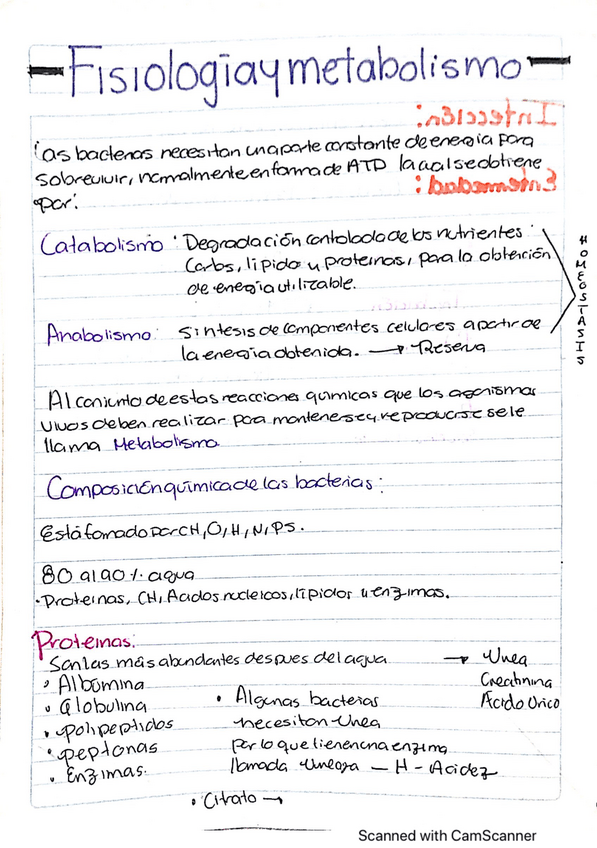 Fisiología y metabolismo
Infección:
Las bacterias necesitan una parte constante de energía para
sobrevivir, normalmente en forma de ATP la cual se obtiene
Enfermedad:
por:
Catabolismo: Degradación controlada de los nutrientes
Carbs, lípido y proteínas, para la obtención
de energía utilizable.
HOMEOSTASIS
Anabolismo: síntesis de componentes celulares a partir de
la energía obtenida. → Reserva
Al conjunto de estas reacciones químicas que los organismos
vivos deben realizar para mantenerse y reproducirse se le
llama Metabolismo
Composición química de las bacterias:
Está formado por CH, O, H, N, P S.
80 al 90 % agua
·Proteínas, CH, Acidos nucleicos, lípidos y enzimas.
Proteínas:
Son las más abundantes despues del agua → Urea
Creatinina
Ácido Úrico
• Albúmina
• Globulina
• polipeptidos
• peptonas
• Enzimas.
• Algunas bacterias
necesitan Urea
por lo que tienen una enzima
llamada Ureasa — H - Acidez
• Citrato →
Scanned with CamScanner